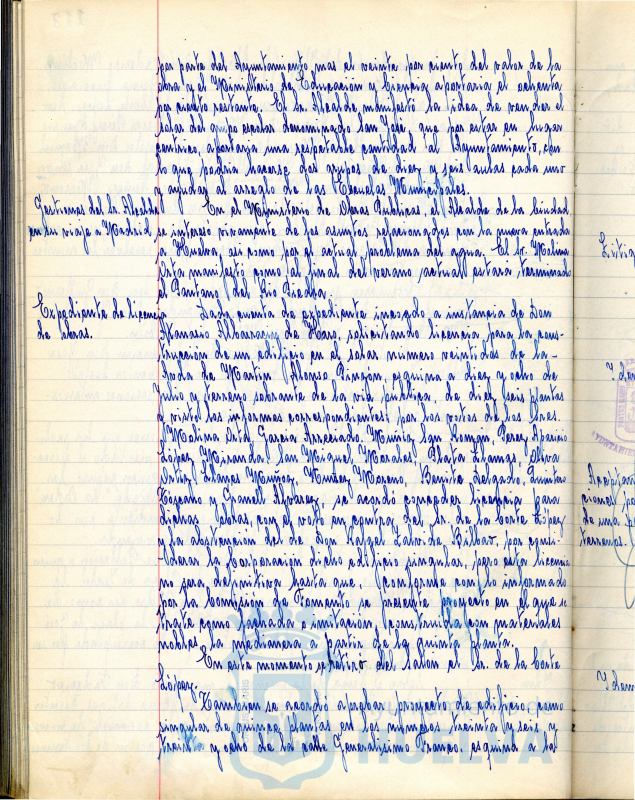 por parte del Ayuntamiento, mas el veinte por ciento del valor de la
obra y el Ministerio de Educación y Ciencia aportaria el ochenta
por ciento restante. El Sr. Alcalde, manifestó la idea de vender el
solar del grupo escolar denominado San José, que por estar en lugar
centrico, aportaria una respetable cantidad al Ayuntamiento, con
lo que podria hacerse dos grupos de diez y seis aulas cada uno
y ayudar al arreglo de las Escuelas Municipales.
Gestiones del Sr. Alcalde
en su viaje a Madrid.
En el Ministerio de Obras Publicas, el Alcalde de la ciudad
se interesó vivamente de los asuntos relacionados con la nueva entrada
a Huelva, asi como por el actual problema del agua. El Sr. Molina
Orta manifestó como al final del verano actual estará terminado
el Pantano del Rio Piedra.
Expediente de licencia
de obras.
Dada cuenta de expediente incoado a instancia de Don
Atanasio de Haro, solicitando licencia para la cons-
trucción de un edificio en el solar número veintidos de la
de Martin Alonso Pinzón, esquina a diez y ocho de
Julio y terreno sobrante de la via publica, de diez y seis plantas
y vistos los informes correspondientes, por los votos de los Sres.
Molina Orta, García Arreciado, Muñiz San Román, Perez Aparicio
López Miranda, San Miguel, Morales, Plata Llamas, Oliva
Ortiz, Llanes Muñoz, Nuñez Moreno, Benito Delgado, Quintero
Lozcano y Alvarez, se acordó conceder licencia para
dichas obras, con el voto en contra del Sr. de la Corte López
y la abstención del de Don Rafael de Bilbao, por consi-
derar la Corporación dicho edificio singular, pero esta licencia
no sera definitiva hasta que, conforme con lo informado
por la Comisión de Fomento se presente proyecto en el que se
trate como fachada e imitación, construida con materiales
nobles la medianera a partir de la quinta planta.
En este momento se retiró del Salón el Sr. de la Corte
López.
Tambien se acordó aprobar proyecto de edificio, como
singular de quince plantas en los numeros treinta y seis, y
treinta y ocho de la calle Generalisimo Franco, esquina a la
HUELVA